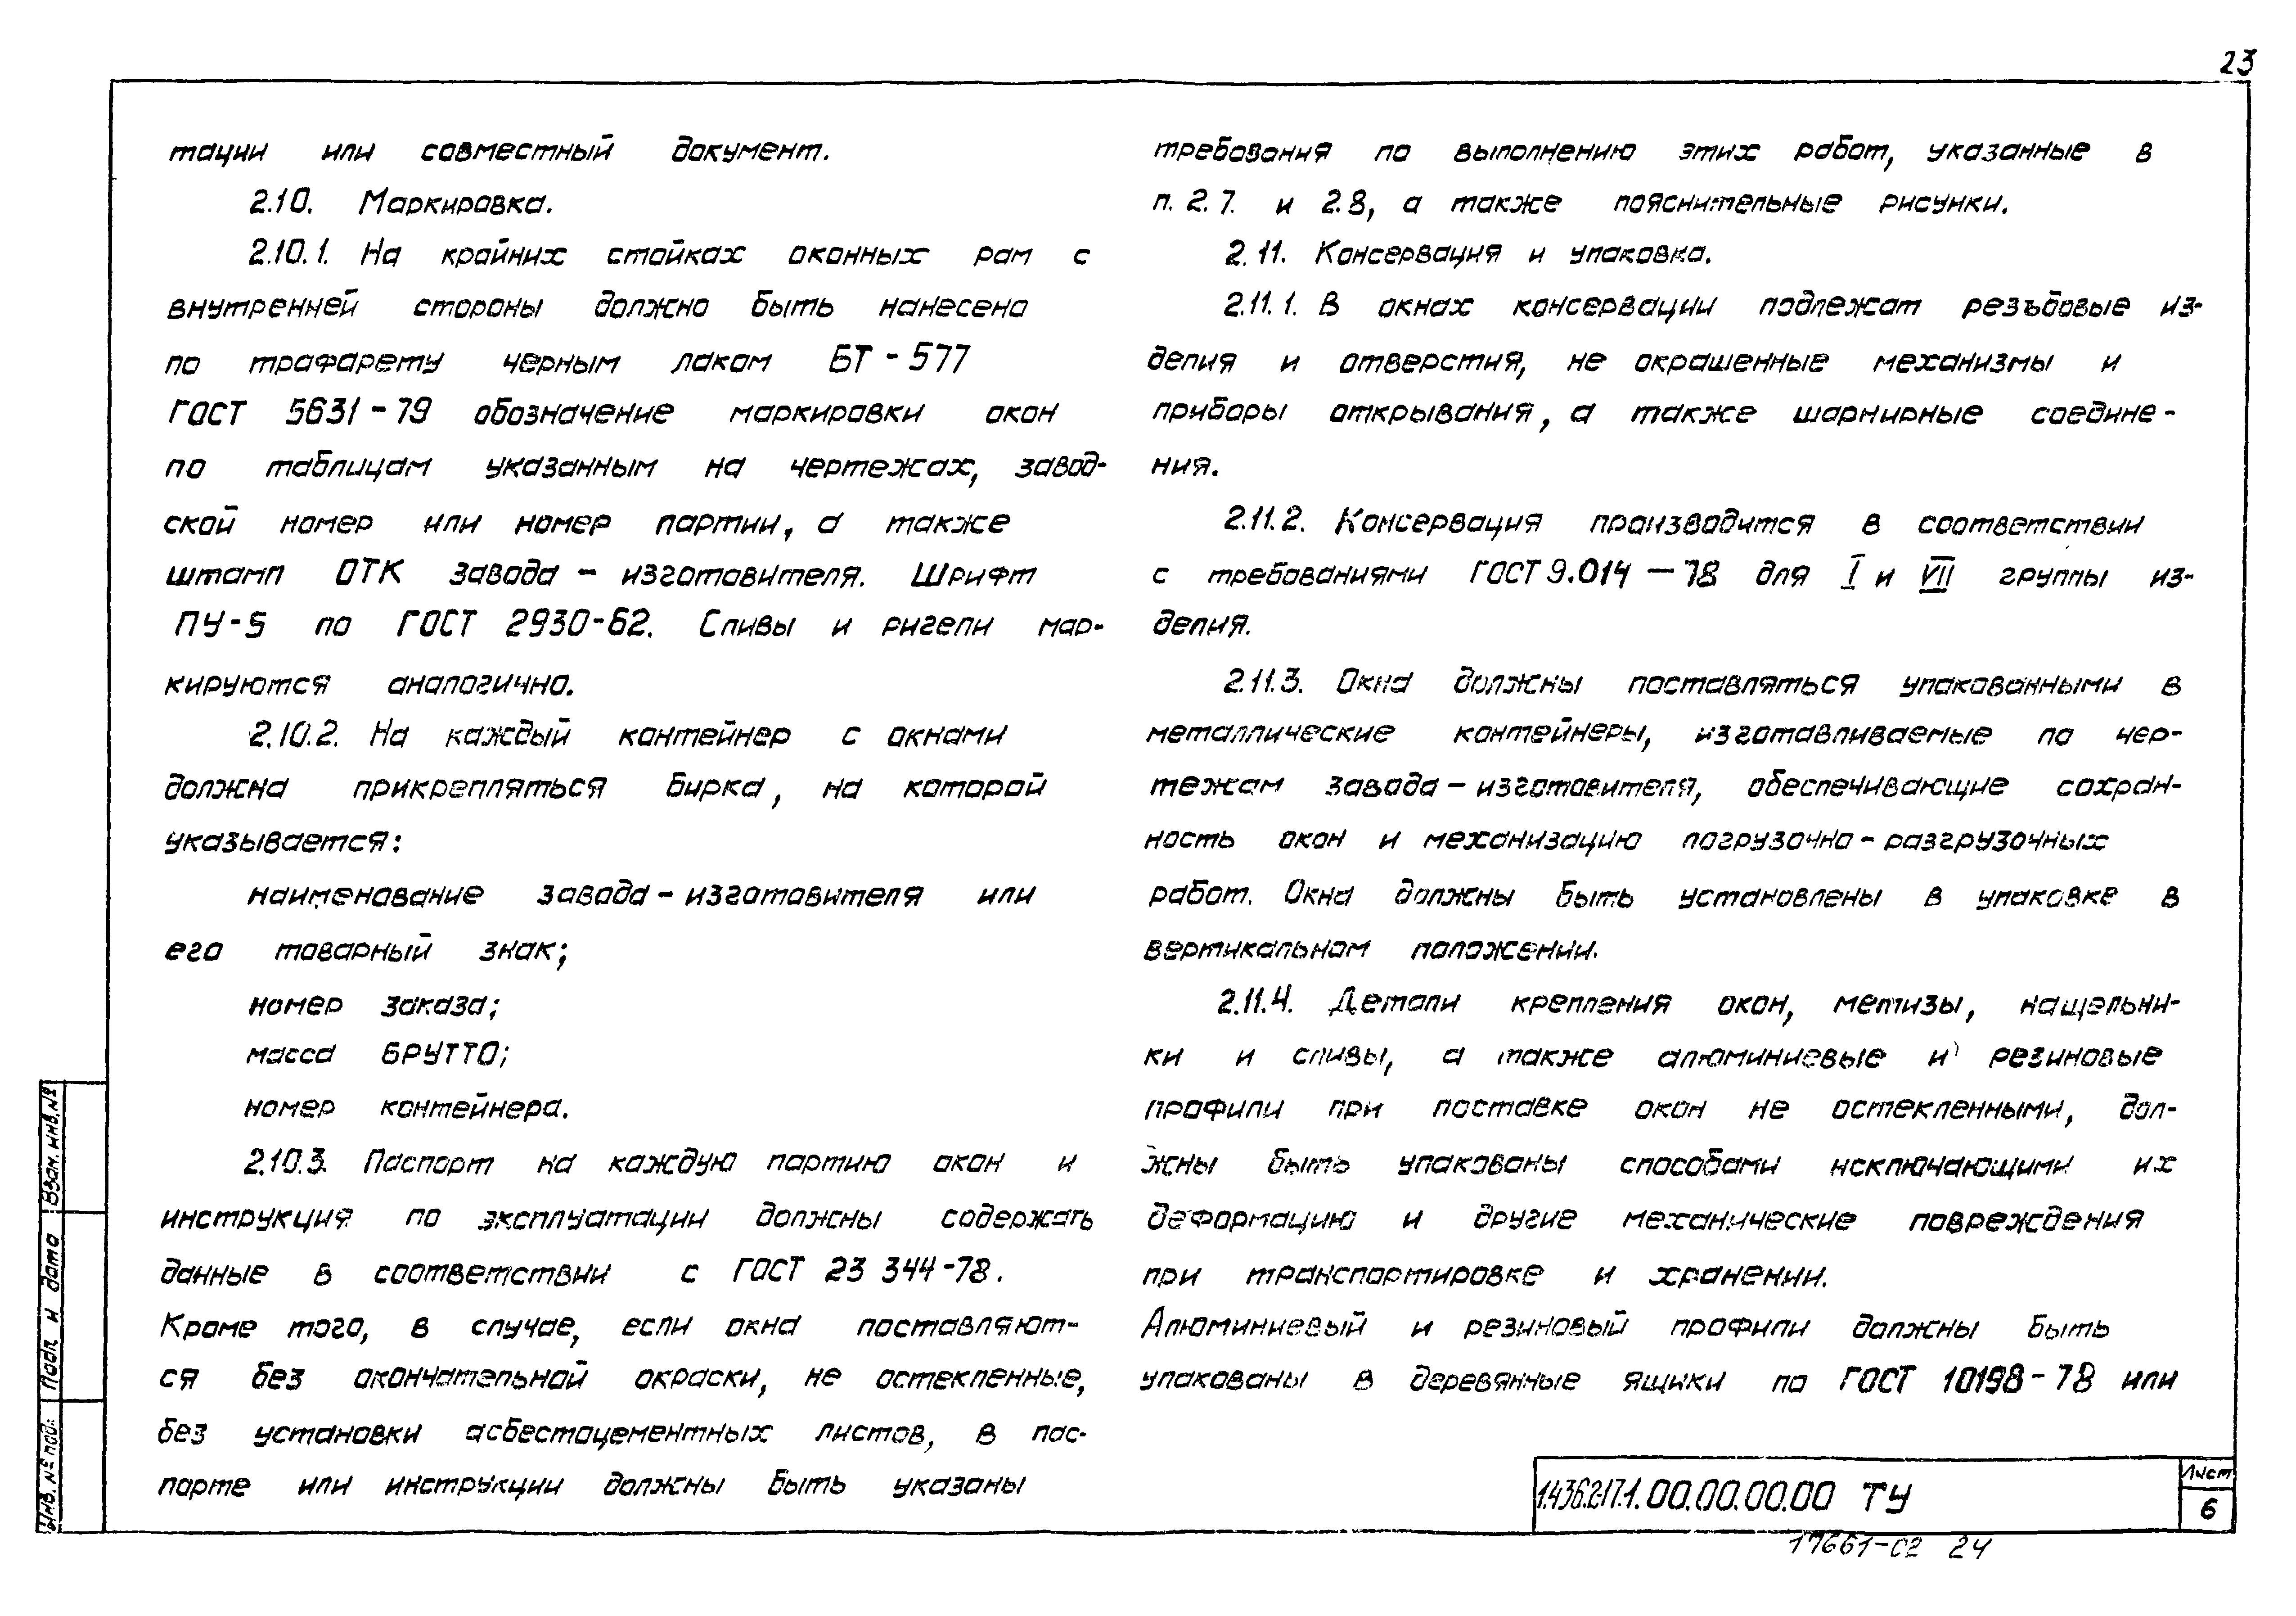 23
тации или совместный документ.
2.10. Маркировка.
2.10.1. На крайних стойках оконных рам с
внутренней стороны должно быть нанесено
по трафарету черным лаком БТ-577
ГОСТ 5631-79 обозначение маркировки окон
по таблицам указанным на чертежах, завод-
ской номер или номер партии, а также
штамп ОТК завода-изготовителя. Шрифт
ПУ-5 по ГОСТ 2930-62. Сливы и ригели мар-
кируются аналогично.
2.10.2. На каждый контейнер с окнами
должна прикрепляться бирка, на которой
указывается:
наименование завода-изготовителя или
его товарный знак;
номер заказа;
масса БРУТТО;
номер контейнера.
2.10.3. Паспорт на каждую партию окон и
инструкция по эксплуатации должны содержать
данные в соответствии с ГОСТ 23 344-78.
Кроме того, в случае, если окна поставляют-
ся без окончательной окраски, не остекленные,
без установки асбестоцементных листов, в пас-
порте или инструкции должны быть указаны
требования по выполнению этих работ, указанные в
п. 2.7. и 2.8, а также пояснительные рисунки.
2.11. Консервация и упаковка.
2.11.1. В окнах консервации подлежат резъбовые из-
делия и отверстия, не окрашенные механизмы и
приборы открывания, а также шарнирные соедине-
ния.
2.11.2. Консервация производится в соответствии
с требованиями ГОСТ 9.014-78 для I и VII группы из-
делия.
2.11.3. Окна должны поставляться упакованными в
металлические контейнеры, изготавливаемые по чер-
тежам завода-изготовителя, обеспечивающие сохран-
ность окон и механизацию погрузочно-разгрузочных
работ. Окна должны быть установлены в упаковке в
вертикальном положении.
2.11.4. Детали крепления окон, метизы, нащельни-
ки и сливы, а также алюминиевые и резиновые
профили при поставке окон не остекленными, дол-
жны быть упакованы способами исключающими их
деформацию и другие механические повреждения
при транспортировке и хранении.
Алюминиевый и резиновый профили должны быть
упакованы в деревянные ящики по ГОСТ 10198-78 или
Взам. инв. №
Подп. и дата
Инв. № подл.
1.436.2-17.1.00.00.00.00 ТУ
Лист
6
17661-02 24